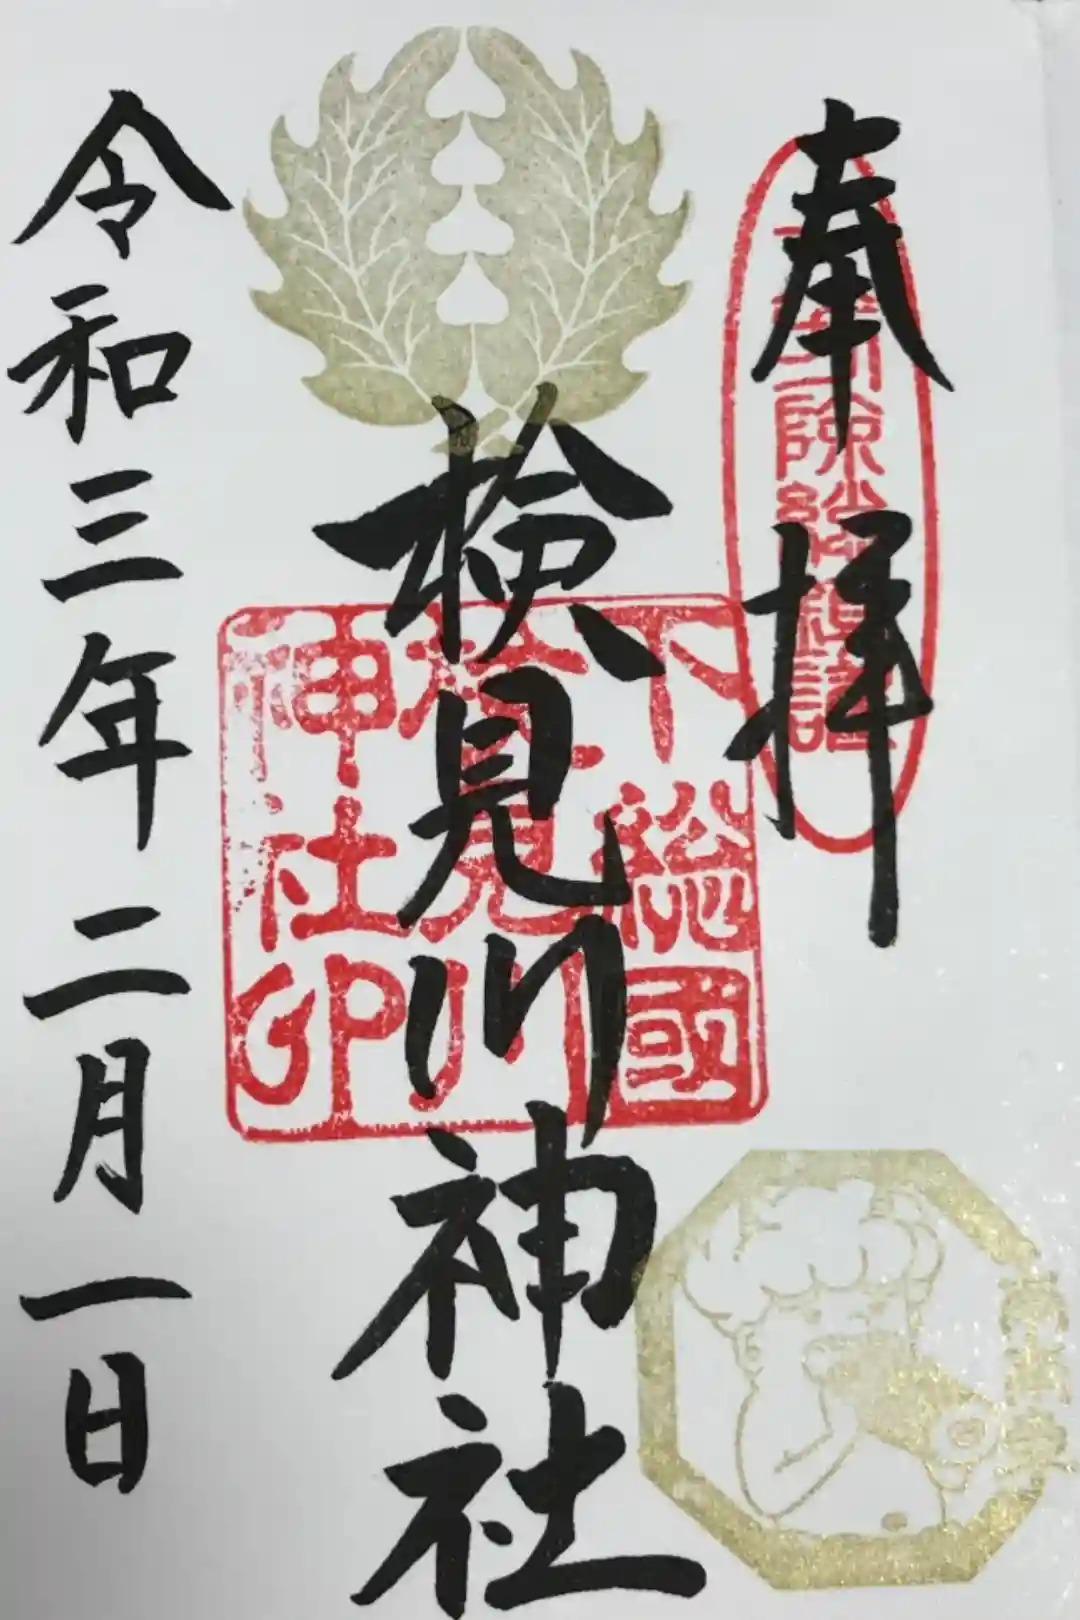 奉拝
下総國
検見川
神社印
検見川神社
令和三年二月一日